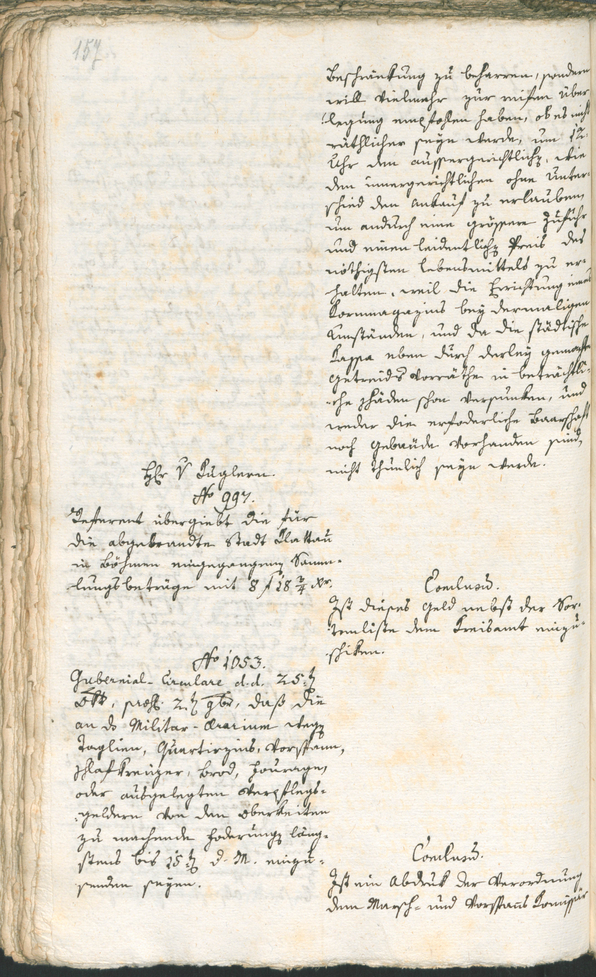 157
Beschränkung zu beharren, sondern
will vielmehr zur reifen Über
legung empfohlen haben, ob es nicht
räthlicher seyn werde, um 12
Uhr den aussergerichtlichen, wie
den innergerichtlichen ohne Unter-
schied den Ankauf zu erlauben,
um andurch eine grössere Zufuhr
und einen leidentlichen Preis des
nöthigsten Lebensmittels zu er-
halten, weil die Errichtung eines
Kornmagazins bey dermaligen
Umständen, und da die städtische
Kassa eben durch derley gemachte
Getreids Vorräthe in beträchtli-
che Schäden schon versunken, und
weder die erforderliche Baarschaft
noch Gebäude vorhanden sind,
nicht thunlich seyn werde.
Hr v Kuglern.
No 997.
Referent übergiebt die für
die abgebrandte Stadt Klattau
in Böhmen eingegangenen Samm-
lungsbeträge mit 8 f 18 3/4 Xr.
Conclusum.
Ist dieses Geld nebst der Sor-
tenliste dem Kreisamt einzu-
schiken.
No 1053.
Gubernial-Circulare d.d. 25ten
8ber, praes. 2ten 9ber, daß die
an das Militar-Aerarium wegen
Taglien, Quartirzins, Vorspann,
Schlafkreuzer, Brod, Fouragen
oder ausgelegten Verpflegs-
geldern von den Oberkeiten
zu machende Foderungen läng-
stens bis 15ten d. M. einzu-
senden seyen.
Conclusum.
Ist ein Abdruk der Verordnung
dem Marsch- und Vorspanns Komissär